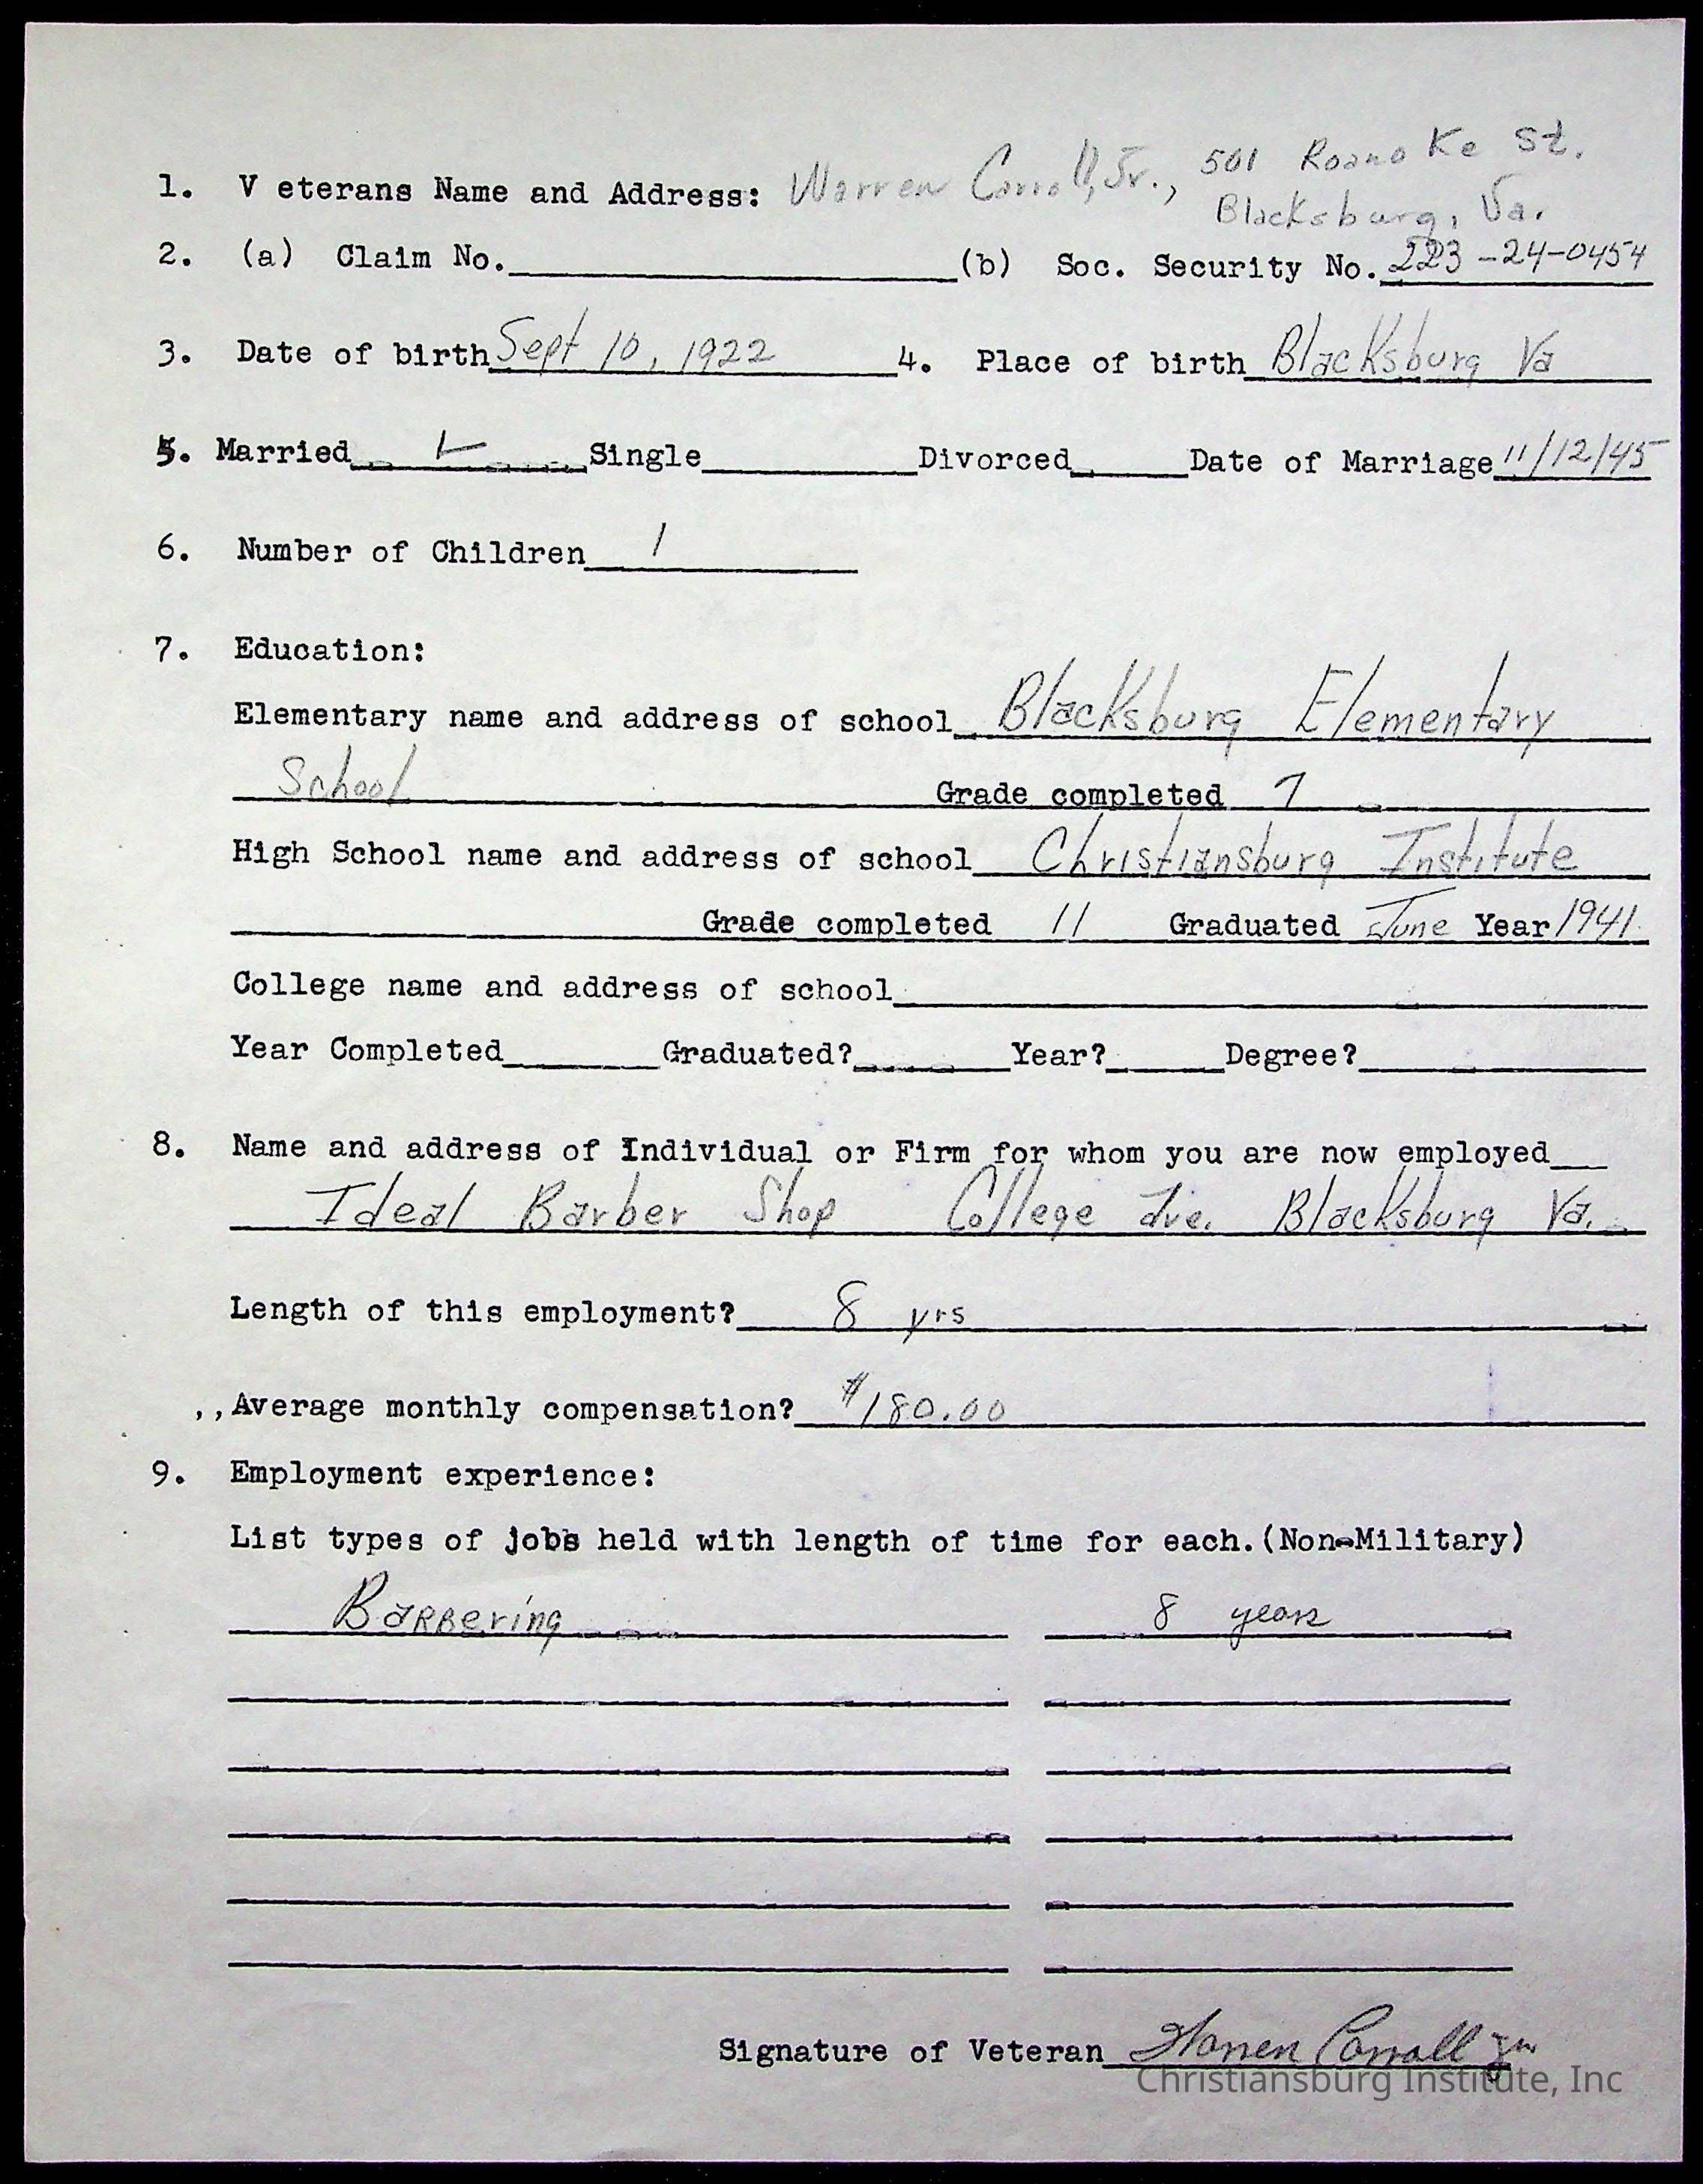 1. V eterans Name and Address: Warren Carroll, Jr., 501 Roanoke St.
Blacksburg, Va.
2. (a) Claim No. (b) Soc. Security No. 223-24-0454
3. Date of birth Sept 10, 1922 4. Place of birth Blacksburg Va
5. Married ✓ Single Divorced Date of Marriage 11/12/45
6. Number of Children 1
7. Education:
Elementary name and address of school Blacksburg Elementary
School Grade completed 7
High School name and address of school Christiansburg Institute
Grade completed 11 Graduated June Year 1941
College name and address of school
Year Completed Graduated? Year? Degree?
8. Name and address of Individual or Firm for whom you are now employed
Ideal Barber Shop College Ave. Blacksburg Va.
Length of this employment? 8 yrs
,,Average monthly compensation? $180.00
9. Employment experience:
List types of jobs held with length of time for each.(Non-Military)
Barbering 8 years
Signature of Veteran Warren Carroll Jr
Christiansburg Institute, Inc